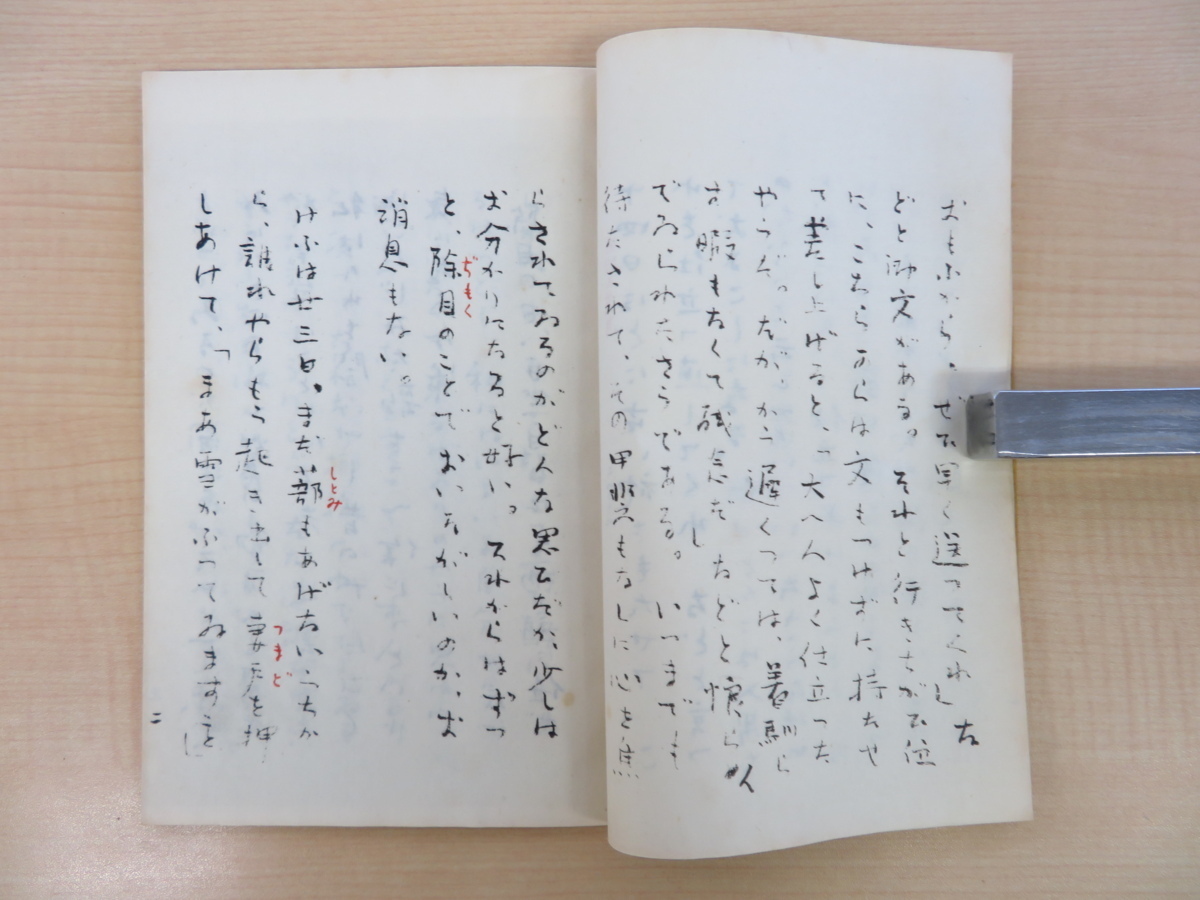 おもふから、ぜひ早く送つてくれ」な
どと御文がある。それと行きちがひ位
に、こちらからは文もつけずに持たせ
て差し上げると、「大へんよく仕立つた
やうだ。だが、かう遅くつては、着馴ら
す暇もなくて残念だ」などと憤らん
でゐられたさうである。いつまでも
待たされて、その甲斐もなしに心を焦
らされてゐるのがどんな思ひだか、少しは
お分かりになると好い。それからはずつ
と、除目のことでおいそがしいのか、お
ぢもく
消息もない。
けふは廿三日。まだ蔀もあげないうちか
しとみ
ら、誰れやらもう起き出して妻戸を押
つまど
しあけて、「まあ雪がふつてゐますこと」
二